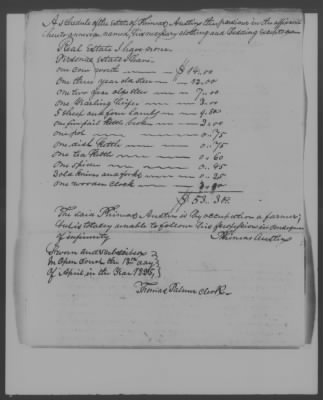 A schedule of the estate of Phineas Austin the pensioner in the affidavit
hereto annexed named, his necessary clothing and bedding excepted
Real Estate I have none.
Personal estate I have.
one cow worth $14.00
one three year old steer 12.00
one two year old steer 7.00
one Yearling Heifer 3.00
5 sheep and four lambs 9.50
one small Kettle broken 2.00
one pot 0.75
one dish Kettle 0.75
one tea Kettle 0.60
one spider 0.45
3 old knives and forks 0.25
one wooden clock
$53.30.
The said Phineas Austin is by occupation a farmer,
but is totally unable to follow his profession in consequence
of infirmity Phineas Austin
Sworn and subscribed
in Open Court the 13th day
of April in the Year
Thomas Palmer clerk